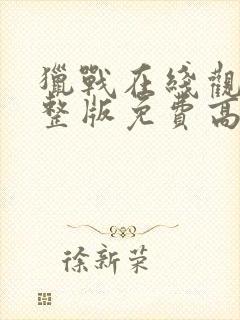 獵戰在綫觀
整版免費高
徐新荣